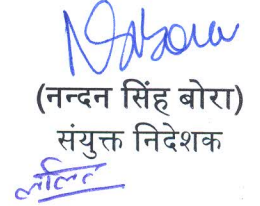 (नन्दन सिंह बोरा)
संयुक्त निदेशक
ललित